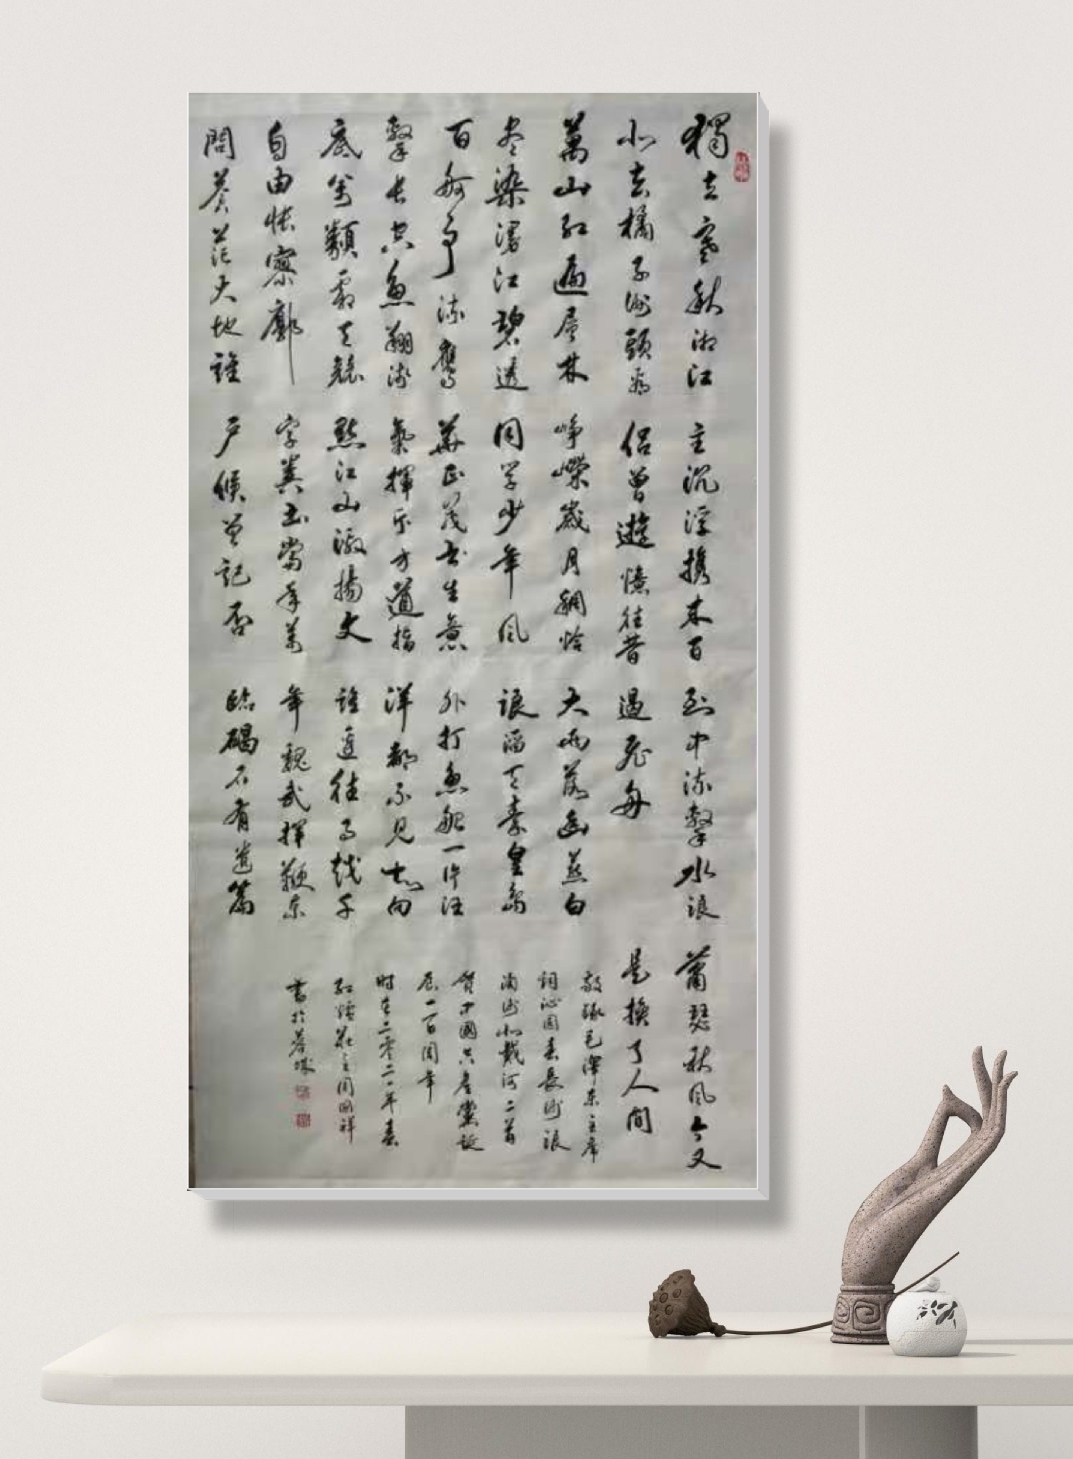 獨立寒秋湘江
北去橘子洲頭看
萬山紅遍層林
尽染漫江碧透
百舸爭流鷹
擊長空魚翔淺
底萬類霜天競
自由悵寥廓
問蒼茫大地誰
主沉浮攜來百
侶曾遊憶往昔
崢嶸歲月稠恰
同學少年風
華正茂書生意
氣揮斥方遒指
點江山激揚文
字糞土當年萬
戶侯曾記否
到中流擊水浪
遏飛舟
大雨落幽燕白
浪滔天秦皇島
外打魚船一片汪
洋都不見知向
誰邊往事越千
年魏武揮鞭東
臨碣石有遺篇
蕭瑟秋風今又
是換了人間
敬錄毛澤東主席
詞沁園春長沙浪
淘沙北戴河二首
賀中國共產黨誕
辰一百周年
时在二零二一年春
莊主周國祥
書於蓉城